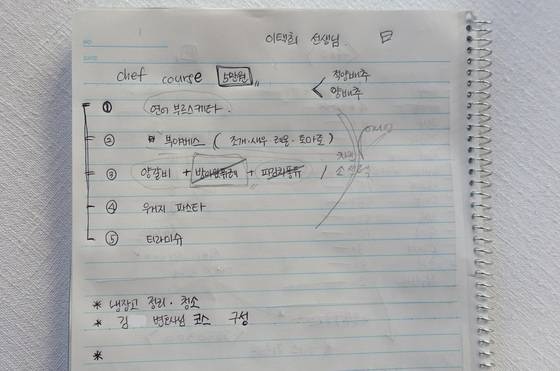 이택희 선생님
chef course 5만원
적양배추
양배추
① 연어 부르스케타.
② 부야베스 (조개·새우 레몬·토마토)
③ 양갈비 + + /
④ 우거지 파스타
⑤ 티라미슈
* 냉장고 정리·청소
* 김 변호사님 코스 구성
*